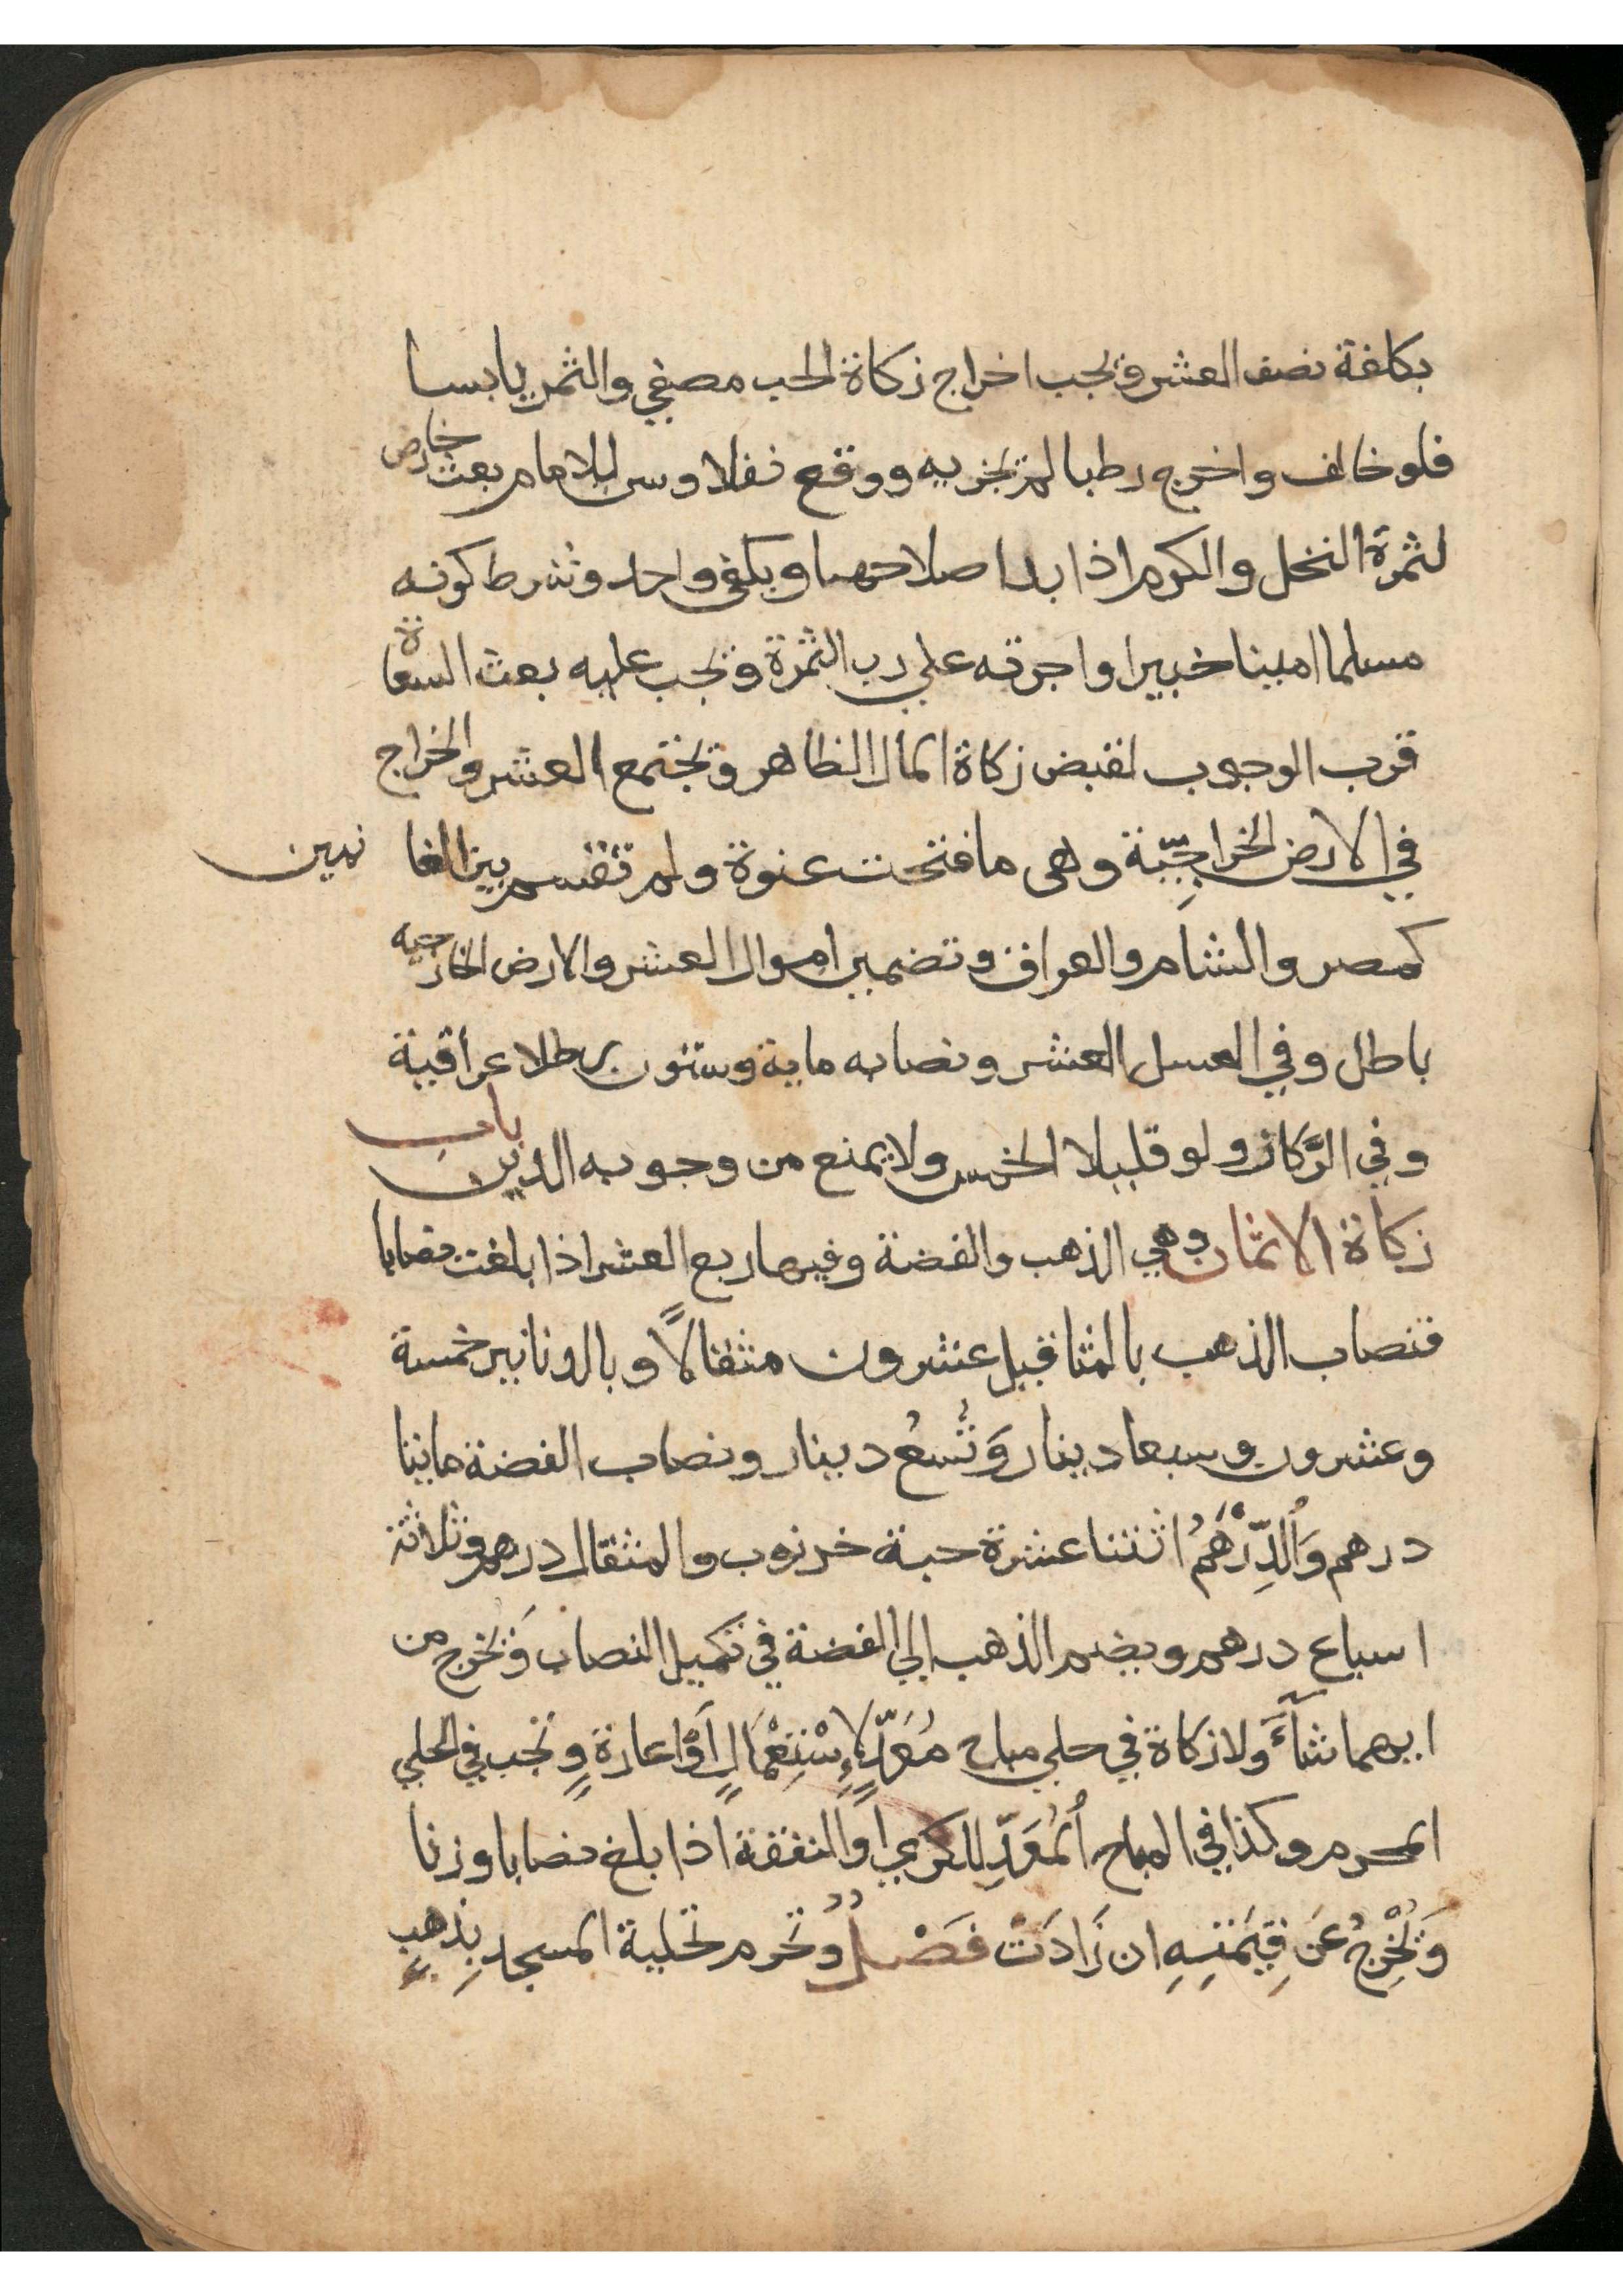 بكلفة نصف العشر ويجب اخراج زكاة الحب مصفي والثمر يابسا
فلو خالف واخرج رطبا لم يجزيه ووقع نفلا وسن للامام بعث خارص
لثمرة النخل والكرم اذا بدا صلاحهما ويكفي واحد وشرط كونه
مسلما امينا خبيرا واجرته علي رب الثمرة ويجب عليه بعث السعاة
قرب الوجوب لقبض زكاة المال الظاهر ويجتمع العشر والخراج
في الارض الخراجيّة وهي ما فتحت عنوة ولم تقسم بين الغانمين
كمصر والشام والعراق وتضمين اموال العشر والارض الخارجيه
باطل وفي العسل العشر ونصابه ماية وستون رطلا عراقية
وفي الرَّكاز ولو قليلا الخمس ولا يمنع من وجوبه الدين باب
زكاة الاثمان وهي الذهب والفضة وفيها ربع العشر اذا بلغت نصابا
فنصاب الذهب بالمثاقيل عشرون مثقالًا وبالدنانير خمسة
وعشرون وسبعا دينار وَتُسعُ دينار ونصاب الفضة مايتا
درهم وَالدِّرْهَمُ اثنتا عشرة حبة خرنوب والمثقال درهم وثلاثة
اسباع درهم ويضم الذهب الي الفضة في تكميل النصاب وَيخرج من
ايهما شآءَ ولا زكاة في حلي مباح مُعَدّ لإِسْتِعْمَالٍ اَوْ اعارةٍ وتجب في الحلي
المحرم وكذا في المباح اْلمُعَدِّ للكري اَو النفقة اذا بلغ نصابا وزنا
وَيُخْرِجُ عَن قِيمَتِهِ ان زَادَتْ فَصْلٌ وُتحرم تحلية المسجد بِذهبٍ